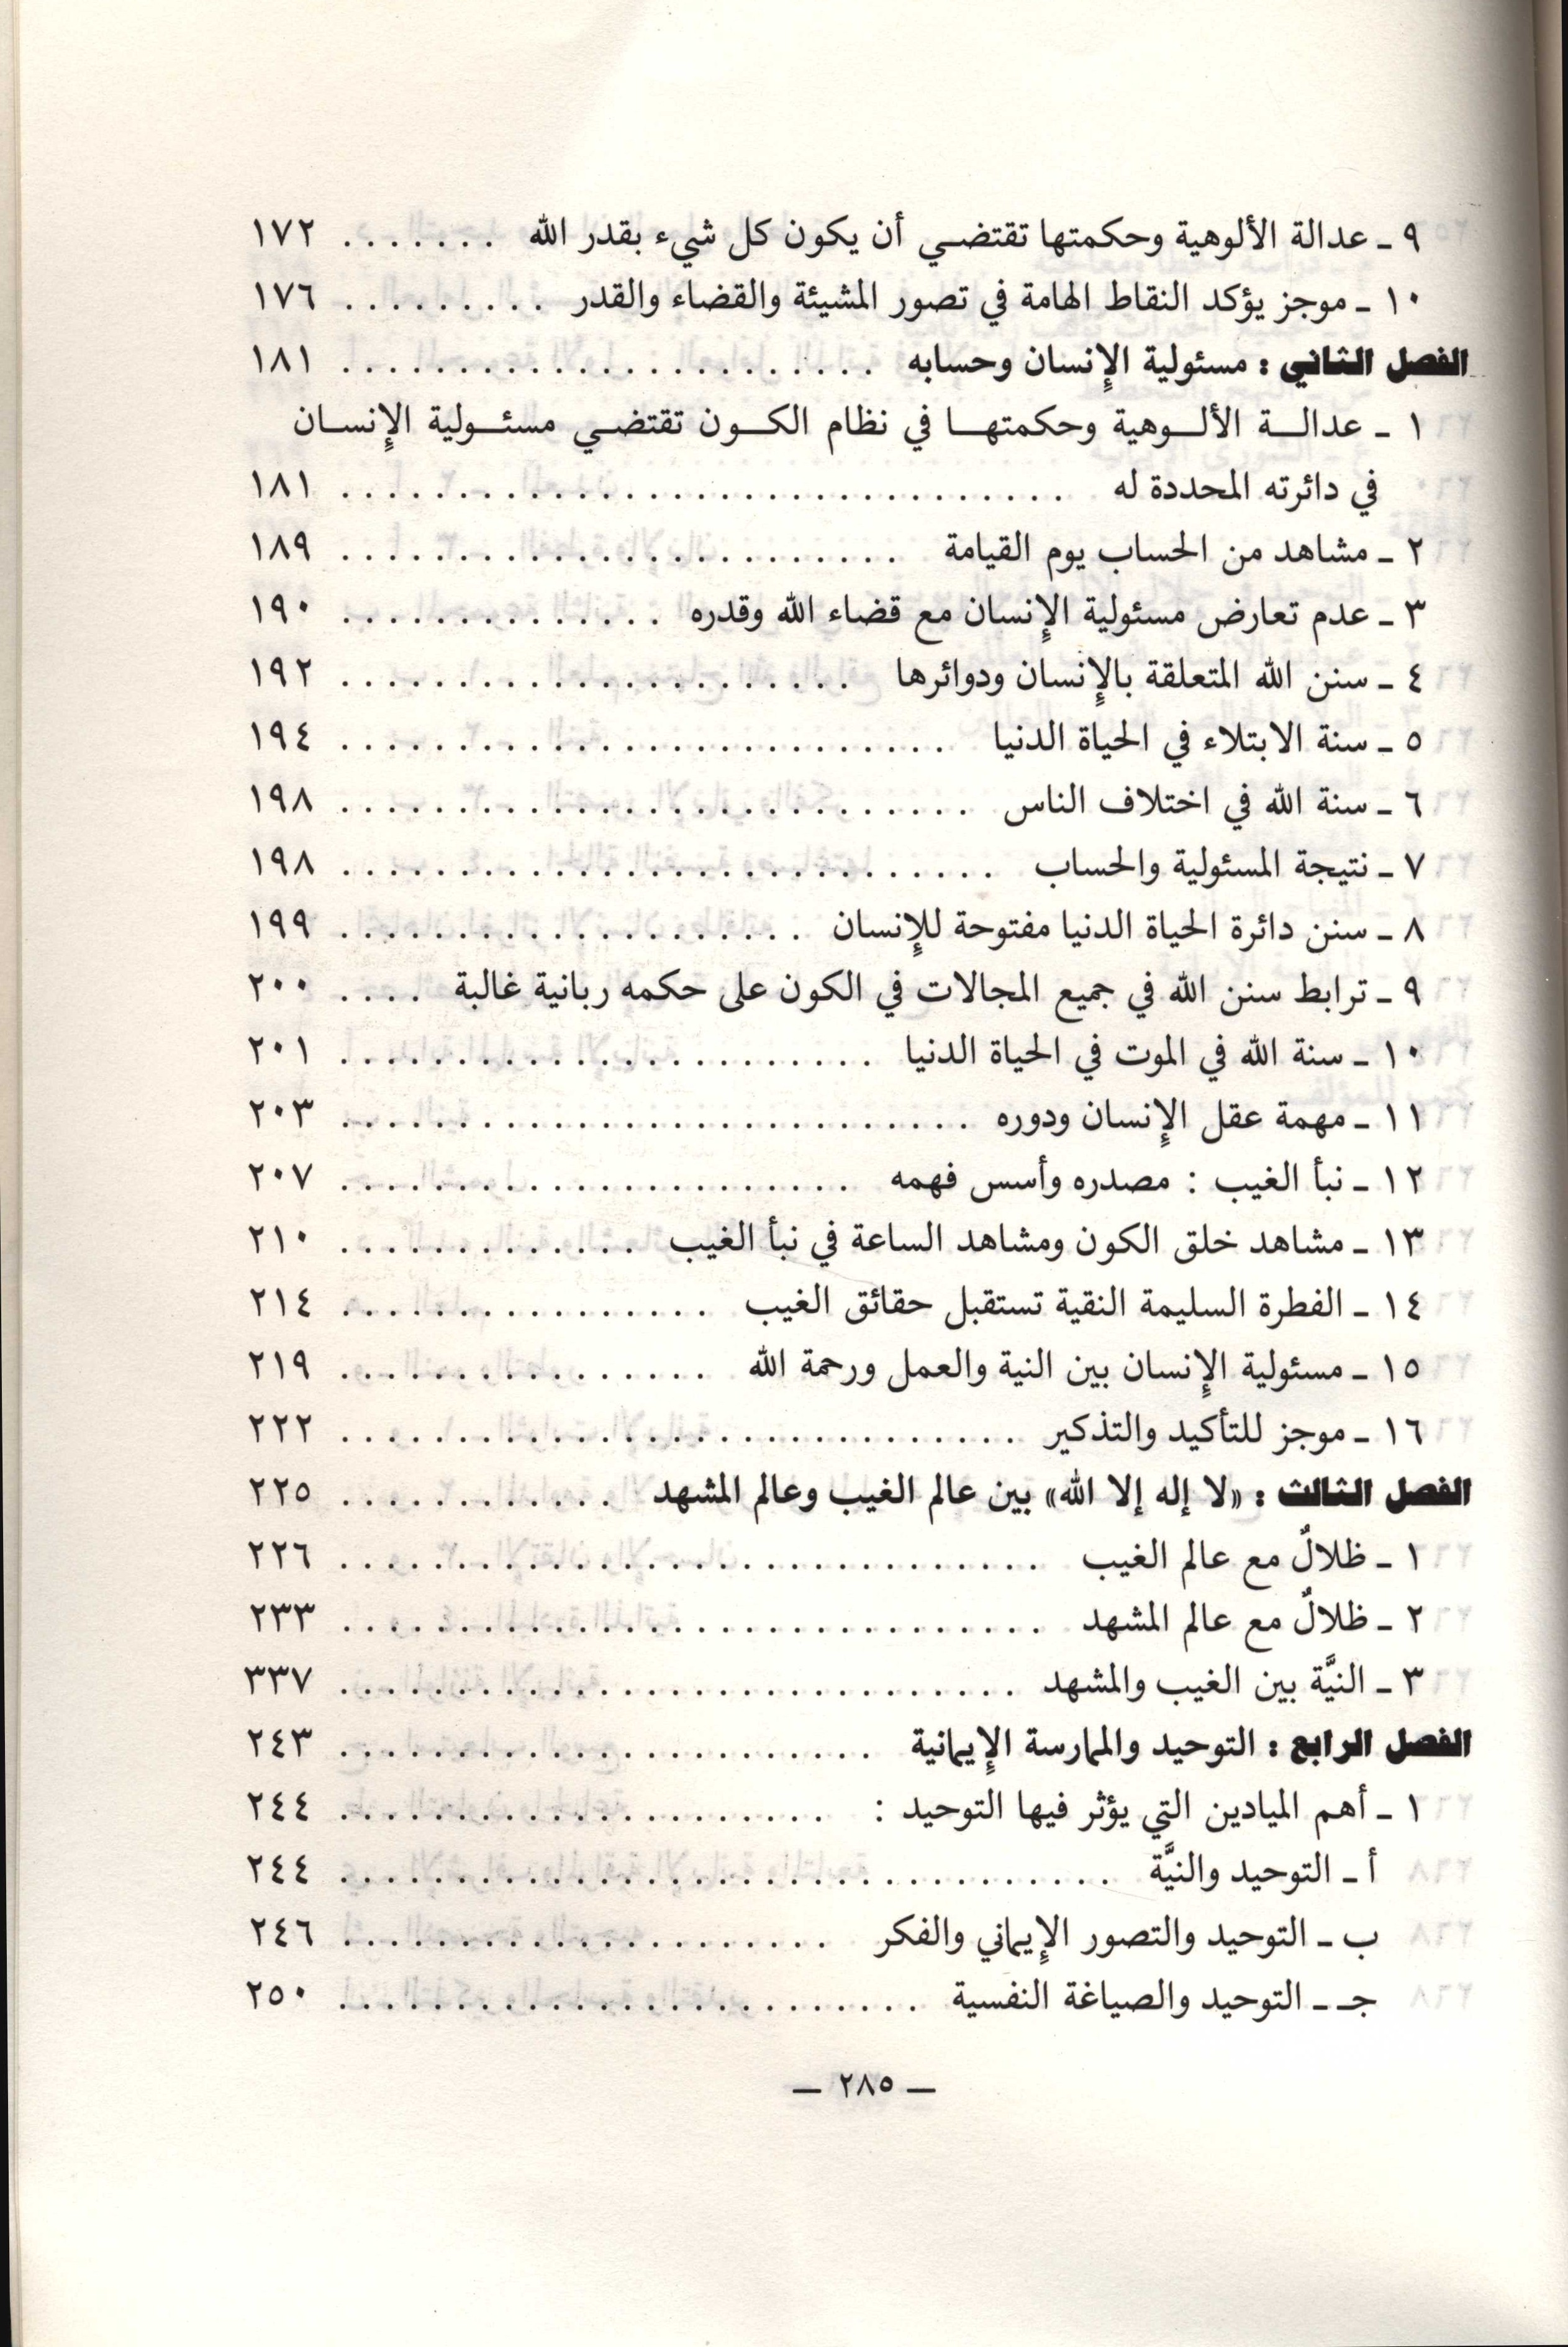 ٩ ـ عدالة الألوهية وحكمتها تقتضي أن يكون كل شيء بقدر الله . . . . . . . ١٧٢
١٠ ـ موجز يؤكد النقاط الهامة في تصور المشيئة والقضاء والقدر . . . . . . . . . ١٧٦
الفصل الثاني : مسئولية الإنسان وحسابه . . . . . . . . . . . . . . . . . . ١٨١
١ ـ عدالة الألوهية وحكمتها في نظام الكون تقتضي مسئولية الإنسان
في دائرته المحددة له . . . . . . . . . . . . . . . . . . . . . . . . ١٨١
٢ ـ مشاهد من الحساب يوم القيامة . . . . . . . . . . . . . . . . . . . ١٨٩
٣ ـ عدم تعارض مسئولية الإنسان مع قضاء الله وقدره . . . . . . . . . . . ١٩٠
٤ ـ سنن الله المتعلقة بالإنسان ودوائرها . . . . . . . . . . . . . . . . . ١٩٢
٥ ـ سنة الابتلاء في الحياة الدنيا . . . . . . . . . . . . . . . . . . . . ١٩٤
٦ ـ سنة الله في اختلاف الناس . . . . . . . . . . . . . . . . . . . . . ١٩٨
٧ ـ نتيجة المسئولية والحساب . . . . . . . . . . . . . . . . . . . . . . ١٩٨
٨ ـ سنن دائرة الحياة الدنيا مفتوحة للإنسان . . . . . . . . . . . . . . . . ١٩٩
٩ ـ ترابط سنن الله في جميع المجالات في الكون على حكمه ربانية غالبة . . . . ٢٠٠
١٠ ـ سنة الله في الموت في الحياة الدنيا . . . . . . . . . . . . . . . . . . ٢٠١
١١ ـ مهمة عقل الإنسان ودوره . . . . . . . . . . . . . . . . . . . . . ٢٠٣
١٢ ـ نبأ الغيب : مصدره وأسس فهمه . . . . . . . . . . . . . . . . . ٢٠٧
١٣ ـ مشاهد خلق الكون ومشاهد الساعة في نبأ الغيب . . . . . . . . . . ٢١٠
١٤ ـ الفطرة السليمة النقية تستقبل حقائق الغيب . . . . . . . . . . . . . ٢١٤
١٥ ـ مسئولية الإنسان بين النية والعمل ورحمة الله . . . . . . . . . . . . . ٢١٩
١٦ ـ موجز للتأكيد والتذكير . . . . . . . . . . . . . . . . . . . . . . . ٢٢٢
الفصل الثالث : «لا إله إلا الله» بين عالم الغيب وعالم المشهد . . . . . . . . . . ٢٢٥
١ ـ ظلالٌ مع عالم الغيب . . . . . . . . . . . . . . . . . . . . . . . ٢٢٦
٢ ـ ظلالٌ مع عالم المشهد . . . . . . . . . . . . . . . . . . . . . . . ٢٣٣
٣ ـ النيَّة بين الغيب والمشهد . . . . . . . . . . . . . . . . . . . . . . ٣٣٧
الفصل الرابع : التوحيد والممارسة الإيمانية . . . . . . . . . . . . . . . . . . ٢٤٣
١ ـ أهم الميادين التي يؤثر فيها التوحيد : . . . . . . . . . . . . . . . . ٢٤٤
أ ـ التوحيد والنيَّة . . . . . . . . . . . . . . . . . . . . . . . . . ٢٤٤
ب ـ التوحيد والتصور الإيماني والفكر . . . . . . . . . . . . . . . . ٢٤٦
جـ ـ التوحيد والصياغة النفسية . . . . . . . . . . . . . . . . . . . ٢٥٠
— ٢٨٥ —